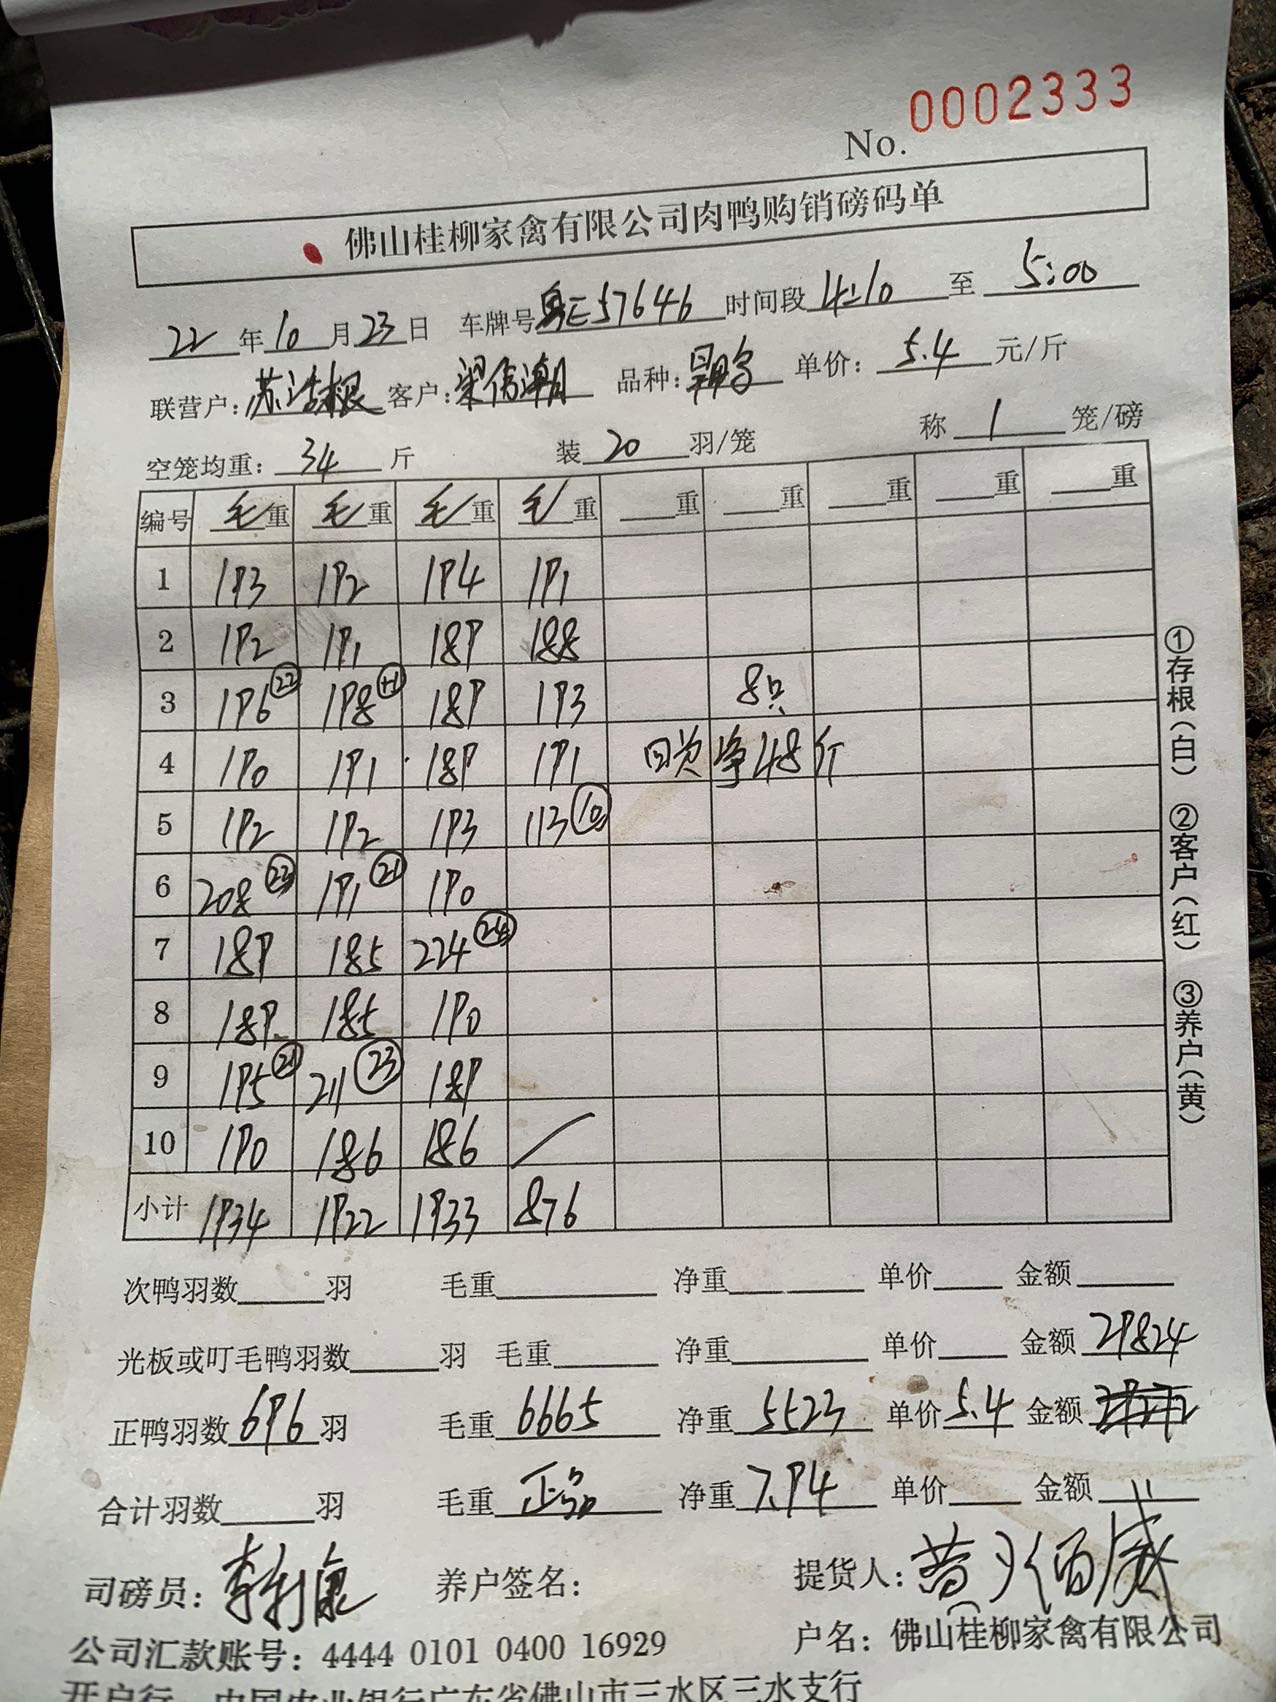 No. 0002333
佛山桂柳家禽有限公司肉鸭购销磅码单
22年10月23日 车牌号粤E57646 时间段4:10至5:00
联营户: 苏洁根 客户: 梁信潮 品种: 单价: 5.4元/斤
空笼均重: 34斤 装20羽/笼 称1笼/磅
编号 毛重 毛重 毛重 毛重 重 重 重 重 重
1 193 192 194 191
2 192 191 189 188
3 196㉒ 198 189 193 8只
4 190 191 189 191 净48斤
5 192 192 193 113⑩
6 208㉓ 191㉑ 190
7 189 185 224㉔
8 189 185 190
9 195㉑ 211㉓ 189
10 190 186 186 /
小计 1934 1922 1933 876
次鸭羽数 羽 毛重 净重 单价 金额
光板或叮毛鸭羽数 羽 毛重 净重 单价 金额 29824
正鸭羽数696羽 毛重6665 净重5523 单价5.4 金额
合计羽数 羽 毛重 净重7.94 单价 金额
司磅员: 李利康 养户签名: 提货人:
公司汇款账号: 4444 0101 0400 16929 户名: 佛山桂柳家禽有限公司
开户行: 中国农业银行广东省佛山市三水区三水支行
①存根(白) ②客户(红) ③养户(黄)